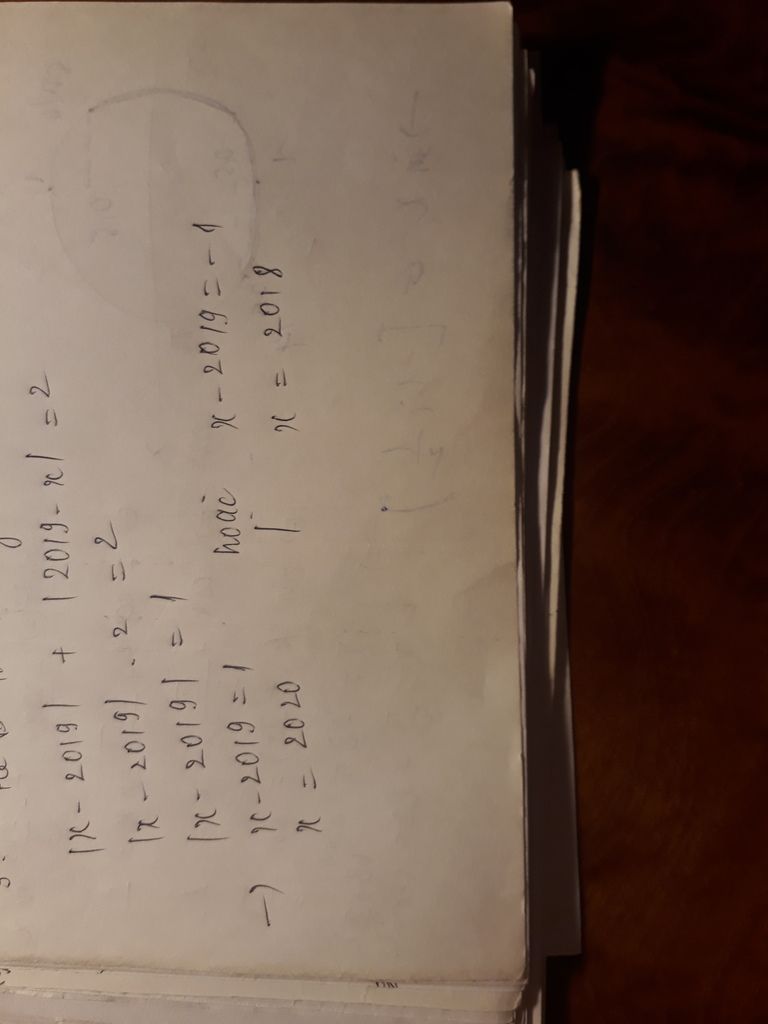 |x - 2019| + |2019 - x| = 2
|x - 2019| . 2 = 2
|x - 2019| = 1
→ x - 2019 = 1 hoặc x - 2019 = - 1
x = 2020 | x = 2018